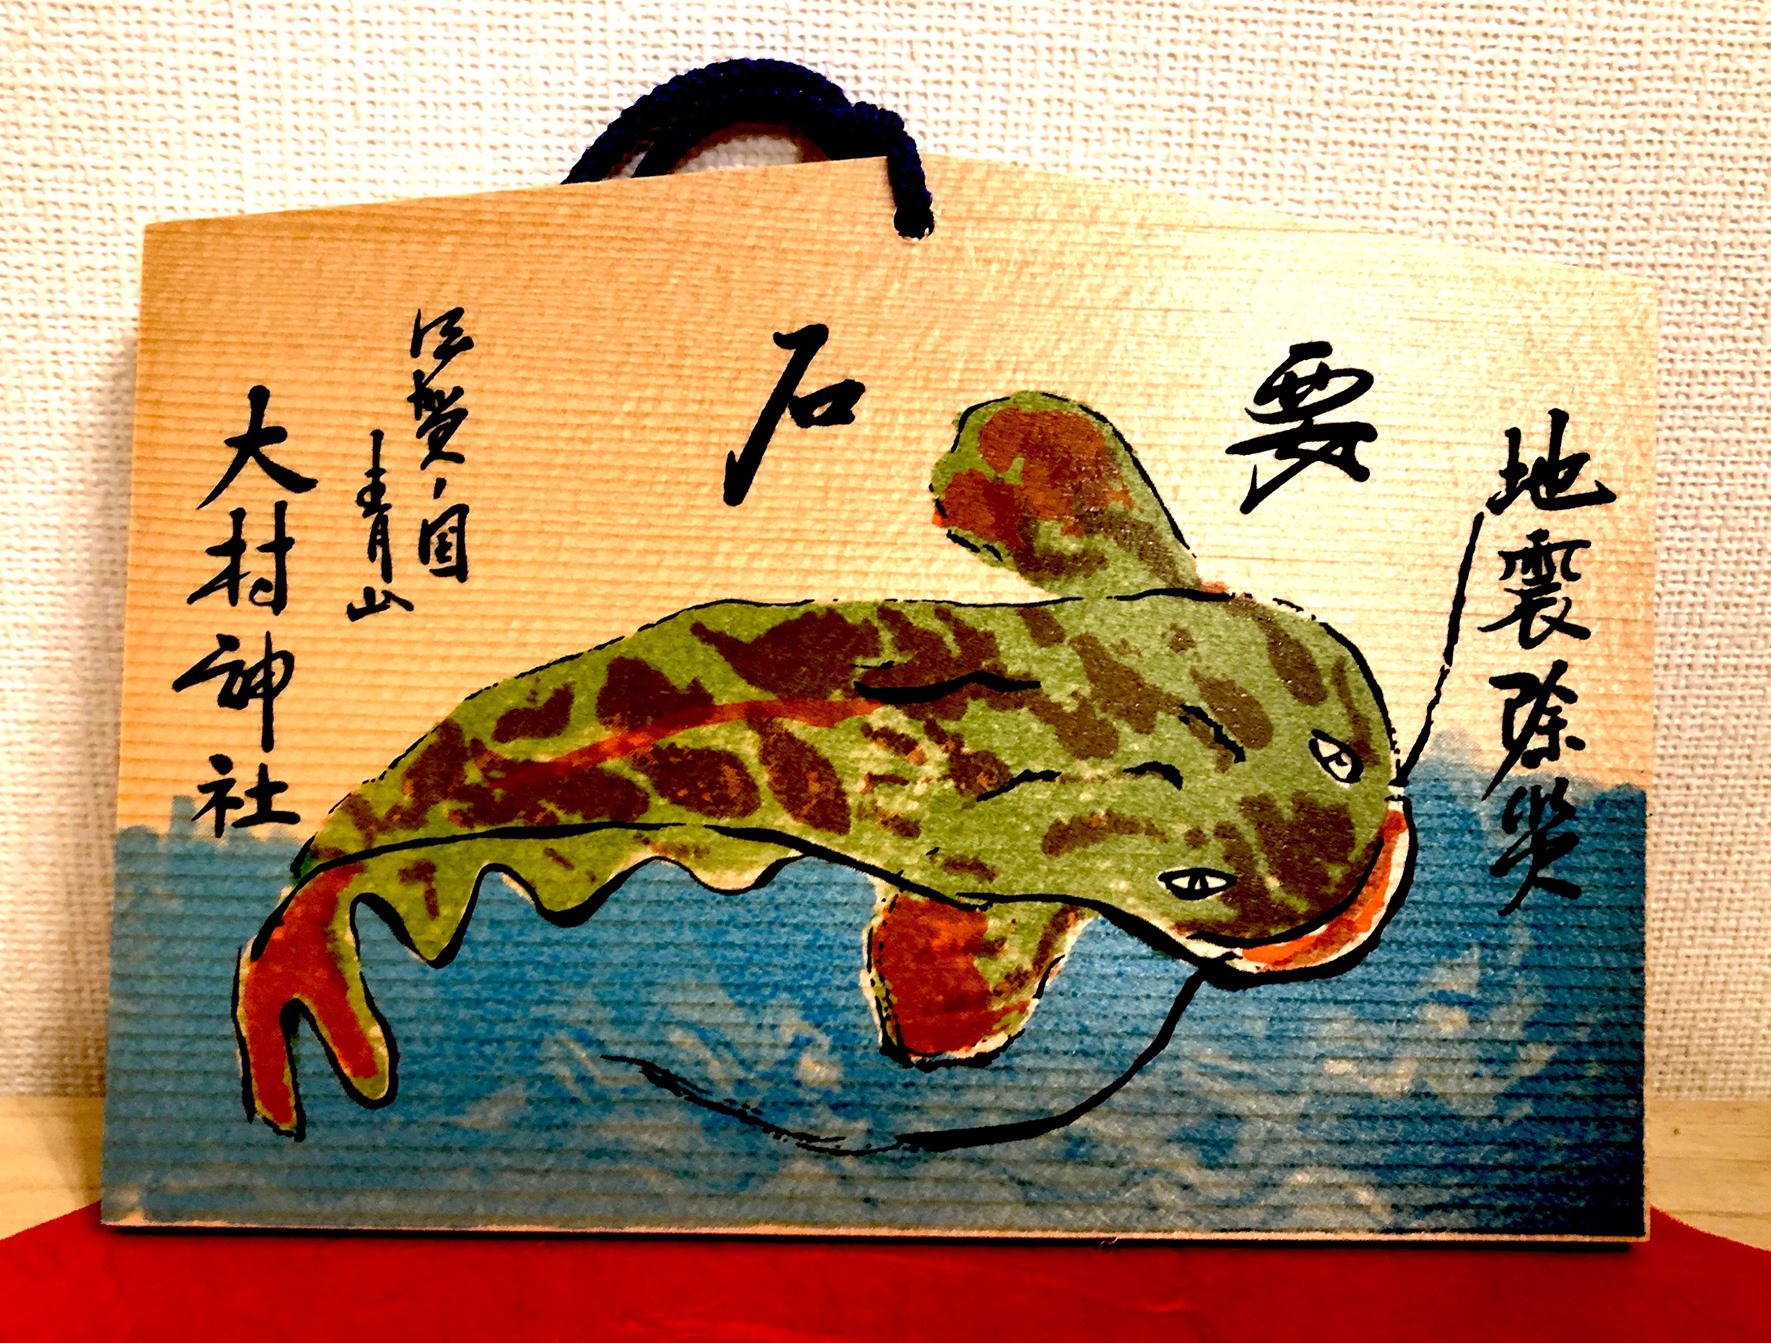 地震除災
要石
伊賀ノ国
青山
大村神社